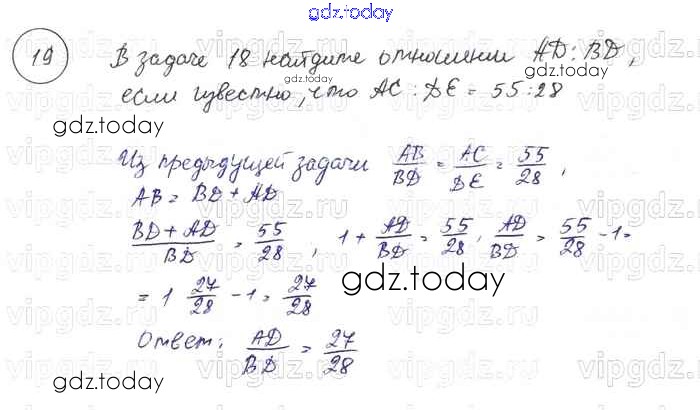 gdz.today
19 В задаче 18 найдите отношении AD : BD,
gdz.today
если известно, что AC : DE = 55 : 28
gdz.today
Из предыдущей задачи AB/BD = AC/DE = 55/28,
AB = BD + AD
(BD + AD)/BD = 55/28, 1 + AD/BD = 55/28, AD/BD = 55/28 - 1 =
gdz.today
= 1 27/28 - 1 = 27/28
Ответ: AD/BD = 27/28
gdz.today
gdz.today